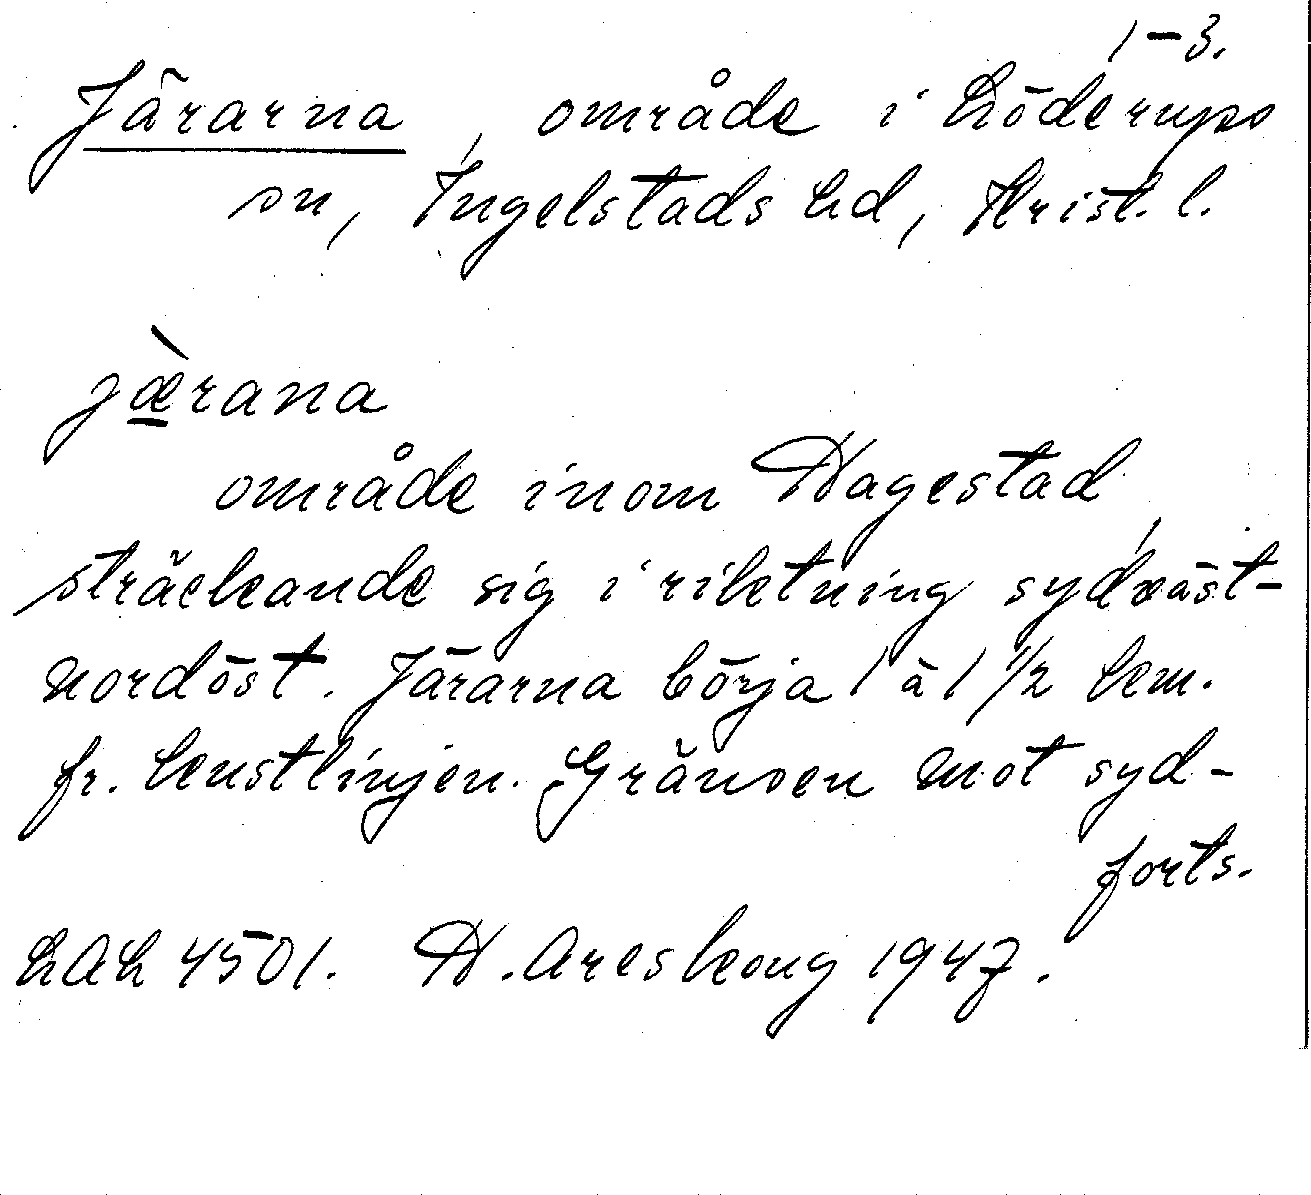 1–3.
Järarna, område i Löderups
sn, Ingelstads hd, Krist. l.
jæ̀rana
område inom Hagestad,
sträckande sig i riktning sydväst-
nordöst. Järarna börja 1 à 1 1/2 km.
fr. kustlinjen. Gränsen mot syd-
forts.
LAL 4501. H. Areskoug 1947.